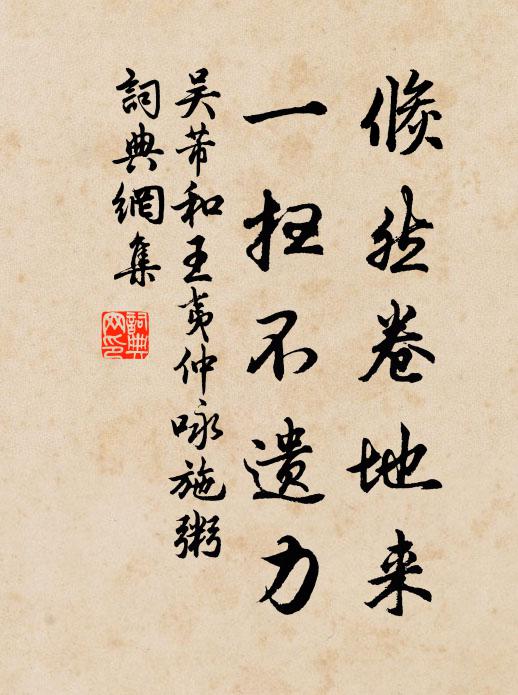 倏然卷地来
一扫不遗力
吴芾和王夷仲咏施粥
詞典網集
詞典网印